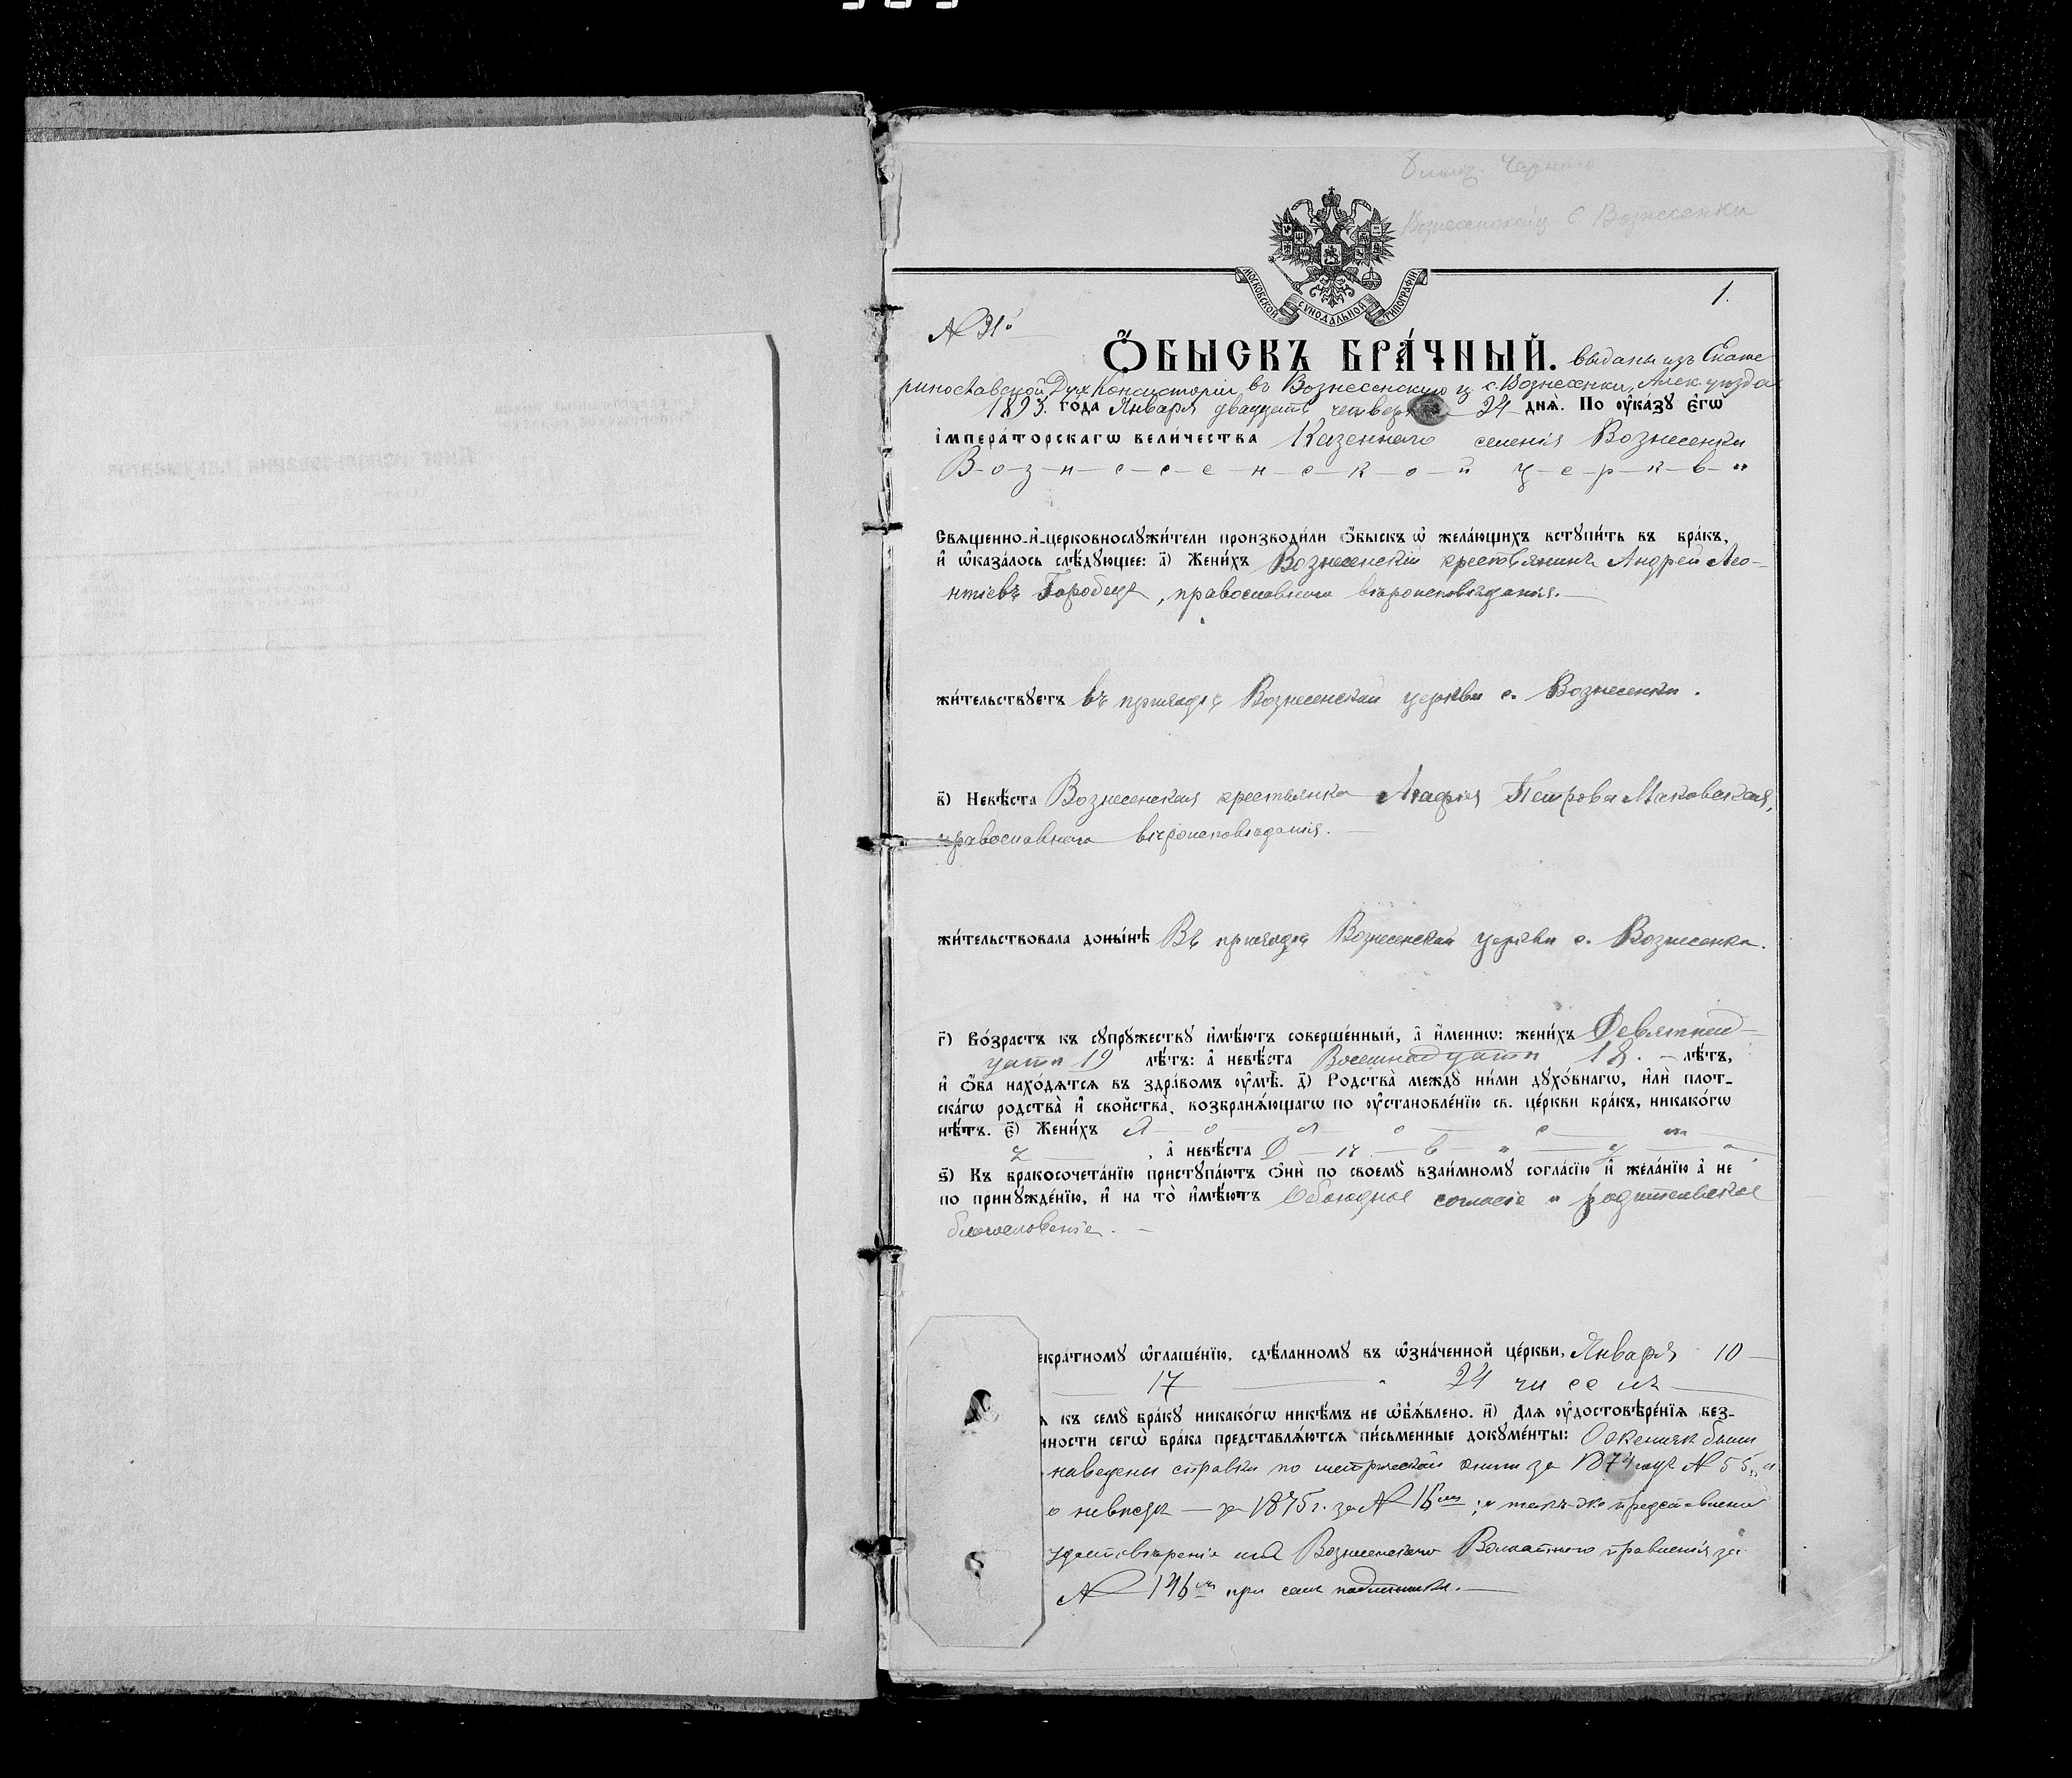 Вознесенской ц. с Вознесенки
МОСКОВСКОЙ СѴНОДАЛЬНОЙ ТИПОГРАФІИ
1.
N 31й
Ѻ҆БЫСКЪ БРА́ЧНЫЙ. выданъ изъ Екате
ринославской Дух Консисторіи въ Вознесенскую ц. с. Вознесенки, Алек. уѣзда
1893. го́да Января двадцать четвер 24 днѧ̀. По ᲂу҆ка́зꙋ є҆гѡ̀
і҆мпера́торскагѡ вели́чества Казеннаго селенія Вознесенки
В-о-з-н-е-с-е-н-с-к-о-й ц-е-р-к-в-и
Свѧщенно-и҆-церковнослꙋжи́тели производи́ли ѻ҆́быскъ ѡ҆ жела́ющихъ встꙋпи́ть въ бра́къ,
и҆ ѡ҆каза́лось слѣ́дꙋющее: а҃) Жени́хъ Вознесенскій крестьянинъ Андрей Лео-
нтіевъ Горобецъ, православнаго вѣроисповѣданія.
жи́тельствꙋетъ въ приходѣ Вознесенской церкви с. Вознесенки.
в҃) Невѣ́ста Вознесенская крестьянка Агафія Петрова Маковская,
православнаго вѣроисповѣданія.
жи́тельствовала доны́нѣ Въ приходѣ Вознесенской церкви с. Вознесенки.
г҃) Во́зрастъ къ сꙋпрꙋ́жествꙋ и҆мѣ́ютъ соверше́нный, а҆ и҆́меннѡ: жени́хъ Девятнад-
цати 19 лѣ́тъ: а҆ невѣ́ста Восемнадцати 18. лѣ́тъ,
и҆ ѻ҆́ба нахо́дѧтсѧ въ здра́вомъ ᲂу҆мѣ̀. д҃) Родства̀ междꙋ̀ ни́ми дꙋхо́внагѡ, и҆лѝ плот-
ска́гѡ родства̀ и҆ сво́йства, возбранѧ́ющагѡ по ᲂу҆становле́нїю св. це́ркви бра́къ, никако́гѡ
нѣ́тъ. є҃) Жени́хъ Х о л о с т
ъ, а҆ невѣ́ста Д ѣ в и ц а
ѕ҃) Къ бракосочета́нїю пристꙋпа́ютъ ѻ҆нѝ по своемꙋ̀ взаи́мномꙋ согла́сїю и҆ жела́нїю а҆ не
по принꙋжде́нїю, и҆ на то̀ и҆мѣ́ютъ обоюдное согласіе и родительское
благословеніе.
екра́тномꙋ ѡ҆глаше́нїю, сдѣ́ланномꙋ въ ѡ҆зна́ченной це́ркви, Января 10
17 24 чиселъ
ѧ къ семꙋ̀ бра́кꙋ никако́гѡ никѣ́мъ не ѡ҆б̾ѧ́влено. и҃) Длѧ ᲂу҆достовѣре́нїѧ без-
нности сегѡ̀ бра́ка представлѧ́ютсѧ пи́сьменные докꙋме́нты: О женихѣ были
наведены справки по метрической книги за 1874 годъ N 55, а
о невѣстѣ — за 1875 г. за N 16мъ; а такъ-же представлено
удостовѣреніе изъ Вознесенскаго Волостного правленія за
N 146мъ при семъ